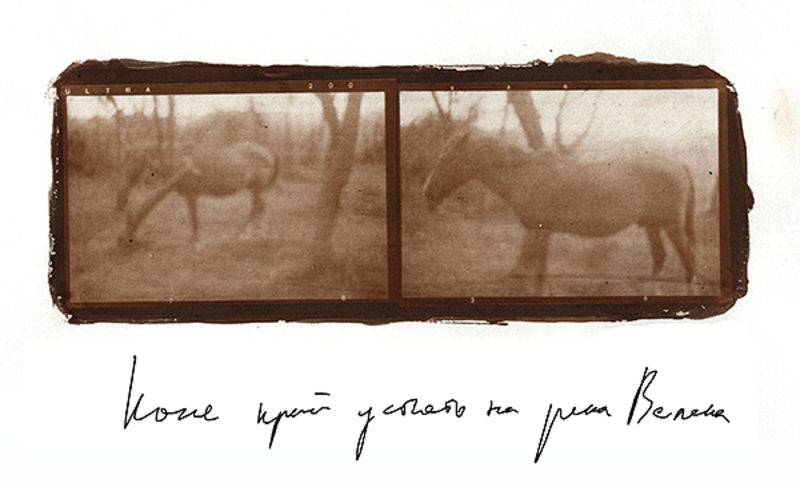 ULTRA 200
Коне край устието на река Велека